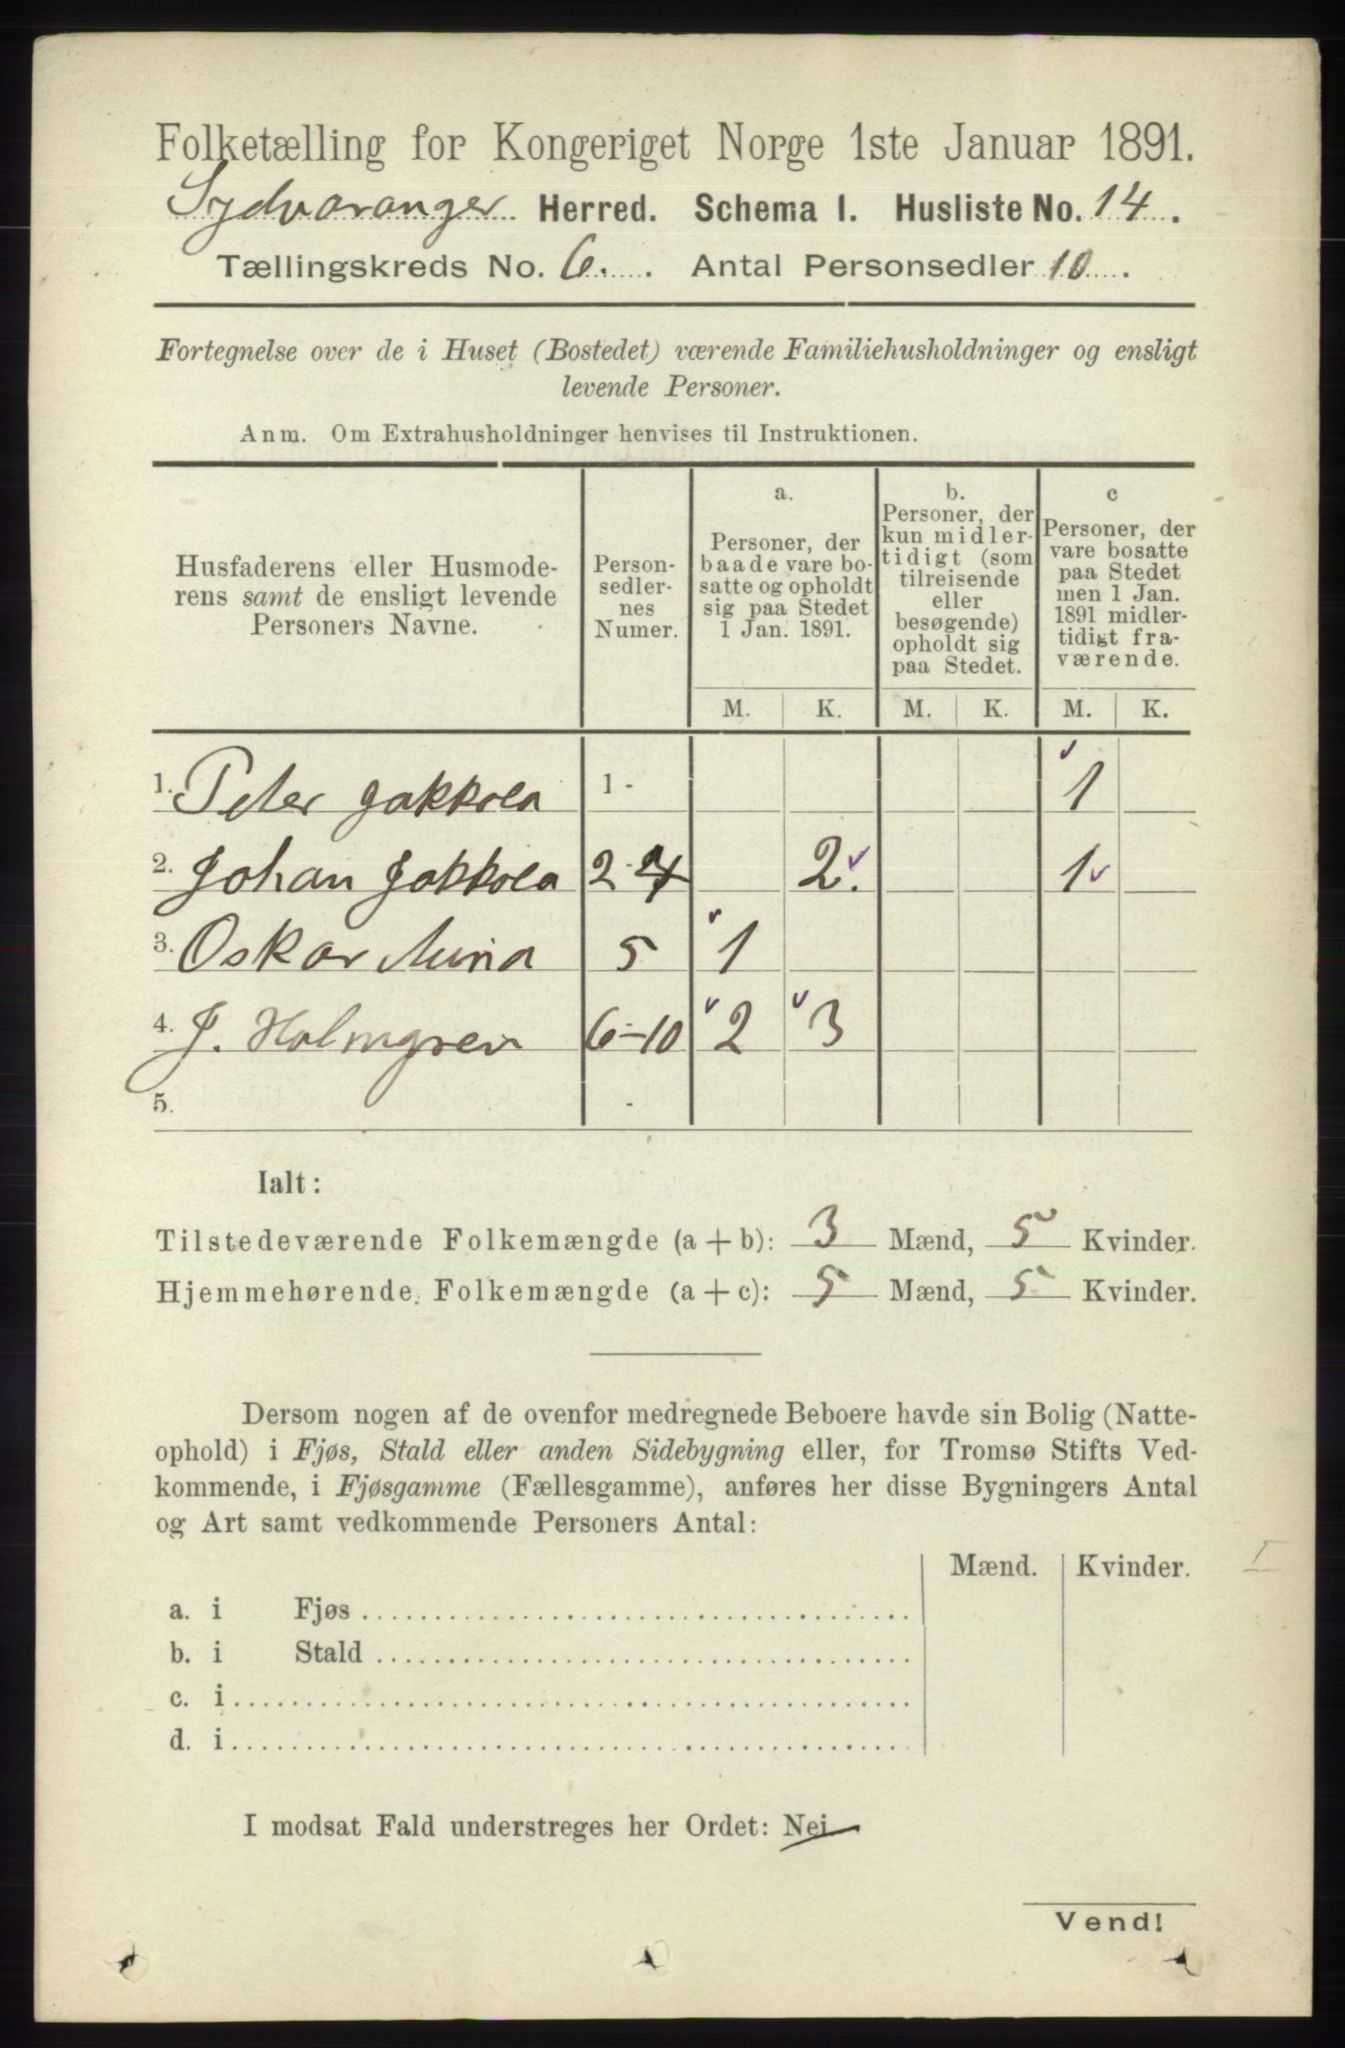 Folketælling for Kongeriget Norge 1ste Januar 1891.
Sydvaranger Herred. Schema I. Husliste No. 14.
Tællingskreds No. 6. Antal Personsedler 10.
Fortegnelse over de i Huset (Bostedet) værende Familiehusholdninger og ensligt
levende Personer.
Anm. Om Extrahusholdninger henvises til Instruktionen.
Husfaderens eller Husmode-
rens samt de ensligt levende
Personers Navne.
Person-
sedler-
nes
Numer.
a.
Personer, der
baade vare bo-
satte og opholdt
sig paa Stedet
1 Jan. 1891.
b.
Personer, der
kun midler-
tidigt (som
tilreisende
eller
besøgende)
opholdt sig
paa Stedet.
c
Personer, der
vare bosatte
paa Stedet
men 1 Jan.
1891 midler-
tidigt fra-
værende.
M. K. M. K. M. K.
1. Peter Jakkola 1 - 1
2. Johan Jakkola 2-4 2. 1
3. Oskar 5 1
4. J. Holmgren 6-10 2 3
5. -
Ialt:
Tilstedeværende Folkemængde (a + b): 3 Mænd, 5 Kvinder.
Hjemmehørende Folkemængde (a + c): 5 Mænd, 5 Kvinder.
Dersom nogen af de ovenfor medregnede Beboere havde sin Bolig (Natte-
ophold) i Fjøs, Stald eller anden Sidebygning eller, for Tromsø Stifts Ved-
kommende, i Fjøsgamme (Fællesgamme), anføres her disse Bygningers Antal
og Art samt vedkommende Personers Antal:
Mænd. Kvinder.
a. i Fjøs
b. i Stald
c. i
d. i
I modsat Fald understreges her Ordet: Nei
Vend!